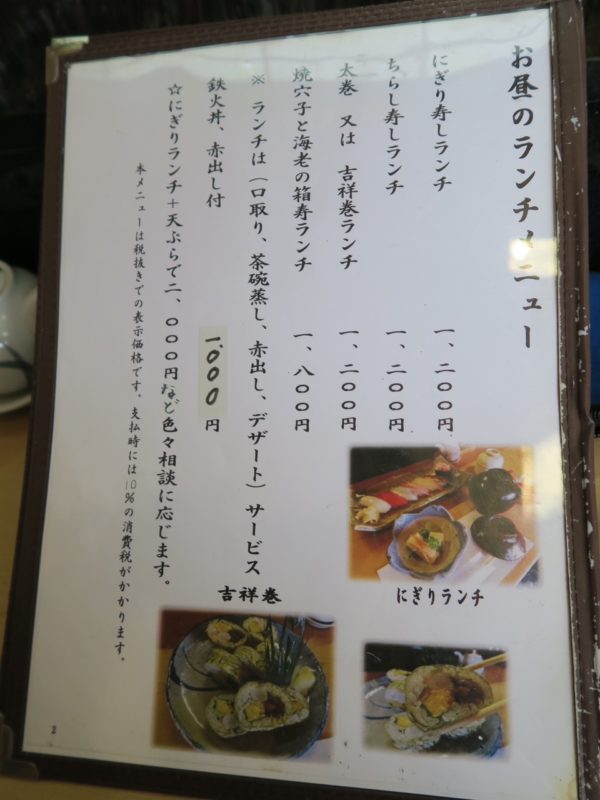 お昼のランチメニュー
にぎり寿しランチ 一、二〇〇円
ちらし寿しランチ 一、二〇〇円
太巻 又は 吉祥巻ランチ 一、二〇〇円
焼穴子と海老の箱寿ランチ 一、八〇〇円
※ ランチは（口取り、茶碗蒸し、赤出し、デザート）サービス
鉄火丼、赤出し付 一、〇〇〇円
☆にぎりランチ＋天ぷらで二、〇〇〇円など色々相談に応じます。
本メニューは税抜きでの表示価格です。支払時には10%の消費税がかかります。
にぎりランチ
吉祥巻
2